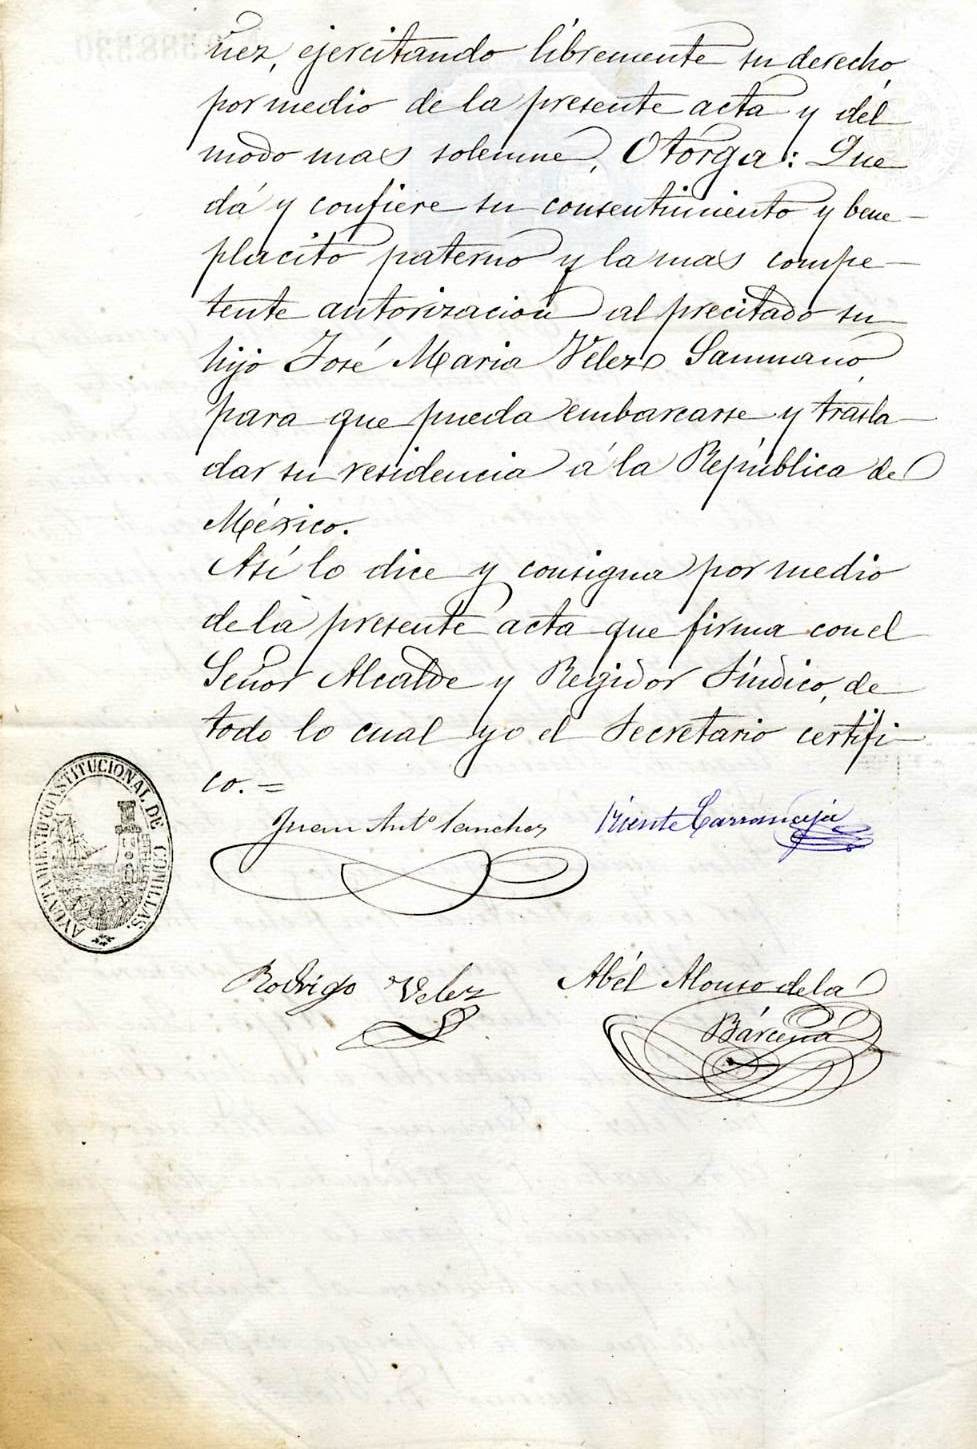 ñez, ejercitando libremente su derecho,
por medio de la presente acta y del
modo mas solemne, Otorga: Que
dá y confiere su consentimiento y bene-
plácito paterno y la mas compe-
tente autorizacion al precitado su
hijo José Maria Velez Sammano
para que pueda embarcarse y trasla-
dar su residencia á la República de
México.
Asi lo dice y consigna por medio
de la presente acta que firma con el
Señor Alcalde y Regidor Síndico, de
todo lo cual yo el Secretario certifi-
co.=
Juan Antº Sanchez Vicente Carranceja
AYUNTAMIENTO CONSTITUCIONAL DE COMILLAS.
Rodrigo Velez Abél Alonso de la
Bárcena